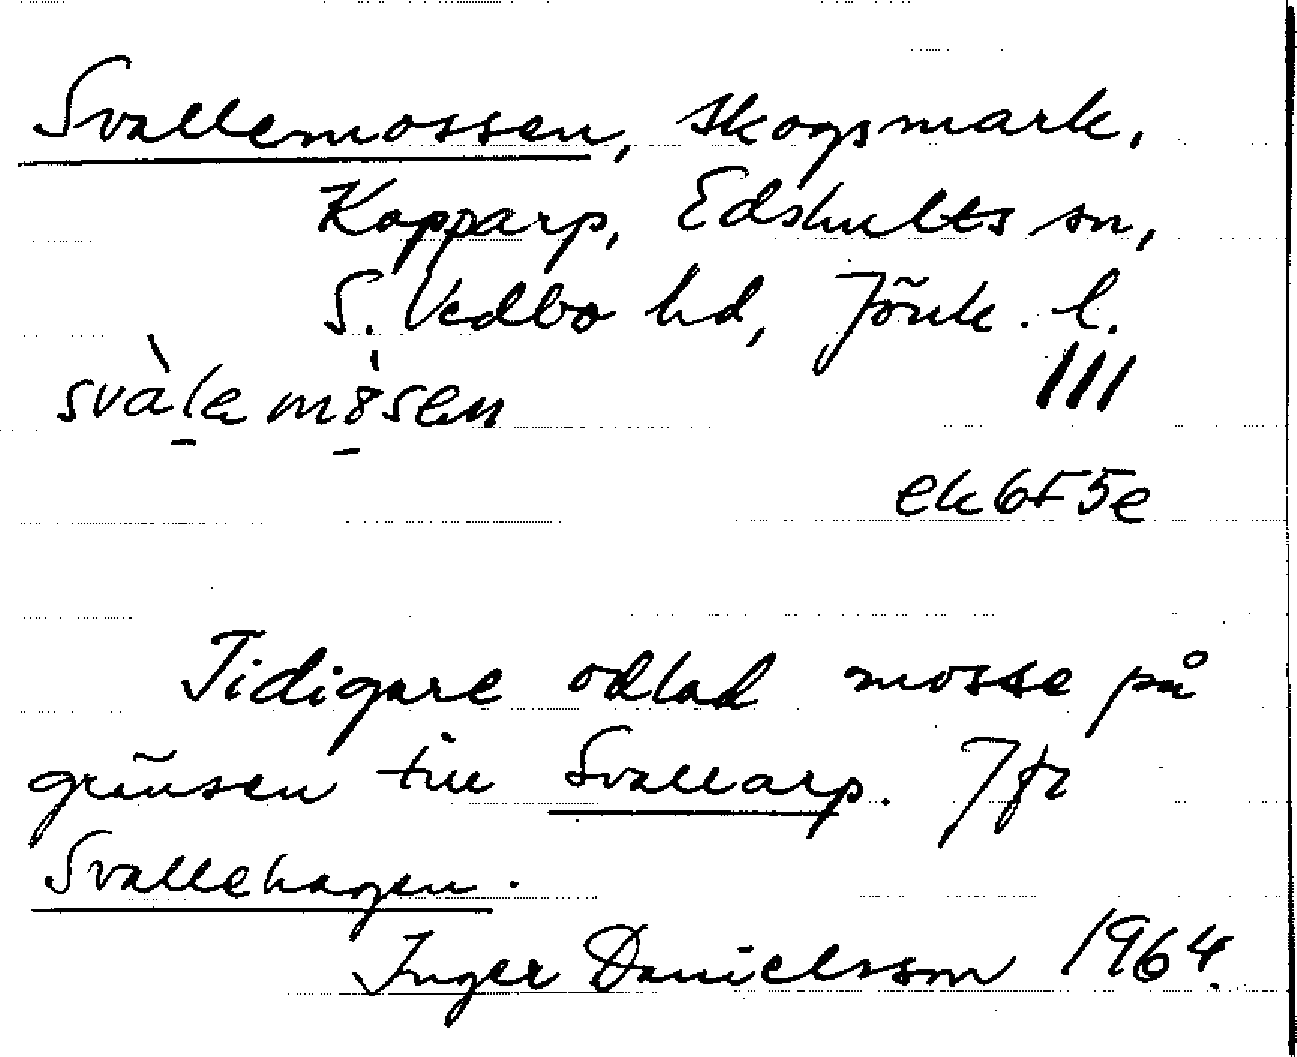 Svallemossen, skogsmark,
Kopparp, Edshults sn,
S. Vedbo hd, Jönk. l.
svàlemòsen
III
ek6F5e
Tidigare odlad mosse på
gränsen till Svallarp. Jfr
Svallehagen.
Inger Danielsson 1964.